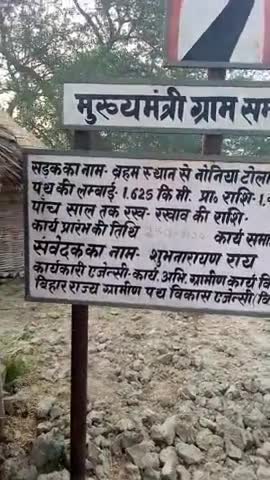 मुख्यमंत्री ग्राम सम
सड़क का नाम- ब्रहम स्थान से नोनिया टोला
पथ की लम्बाई- 1.625 कि मी. प्रा० राशि- 1.
पांच साल तक रख- रखाव की राशि-
कार्य प्रारंम की तिथि कार्य समा
संवेदक का नाम- शुभनारायण राय
कार्यकारी एजेन्सी- कार्य. अभि. ग्रामीण कार्य वि
बिहार राज्य ग्रामीण पथ विकास एजेन्सी (बि